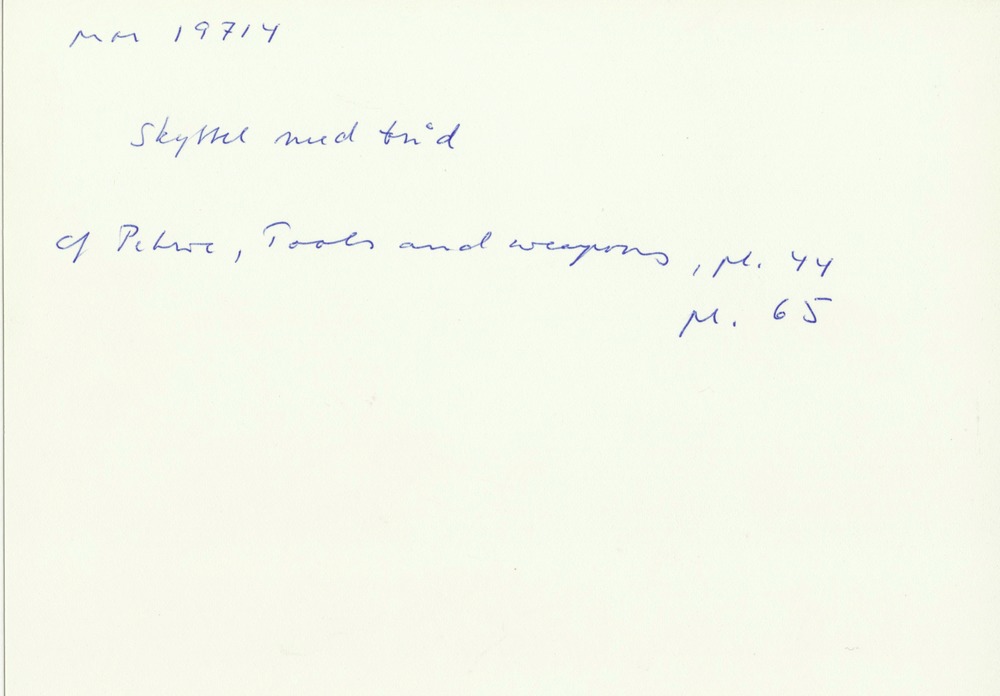 MM 19714
Skyttel med tråd
cf Petrie, Tools and weapons, pl. 44
pl. 65